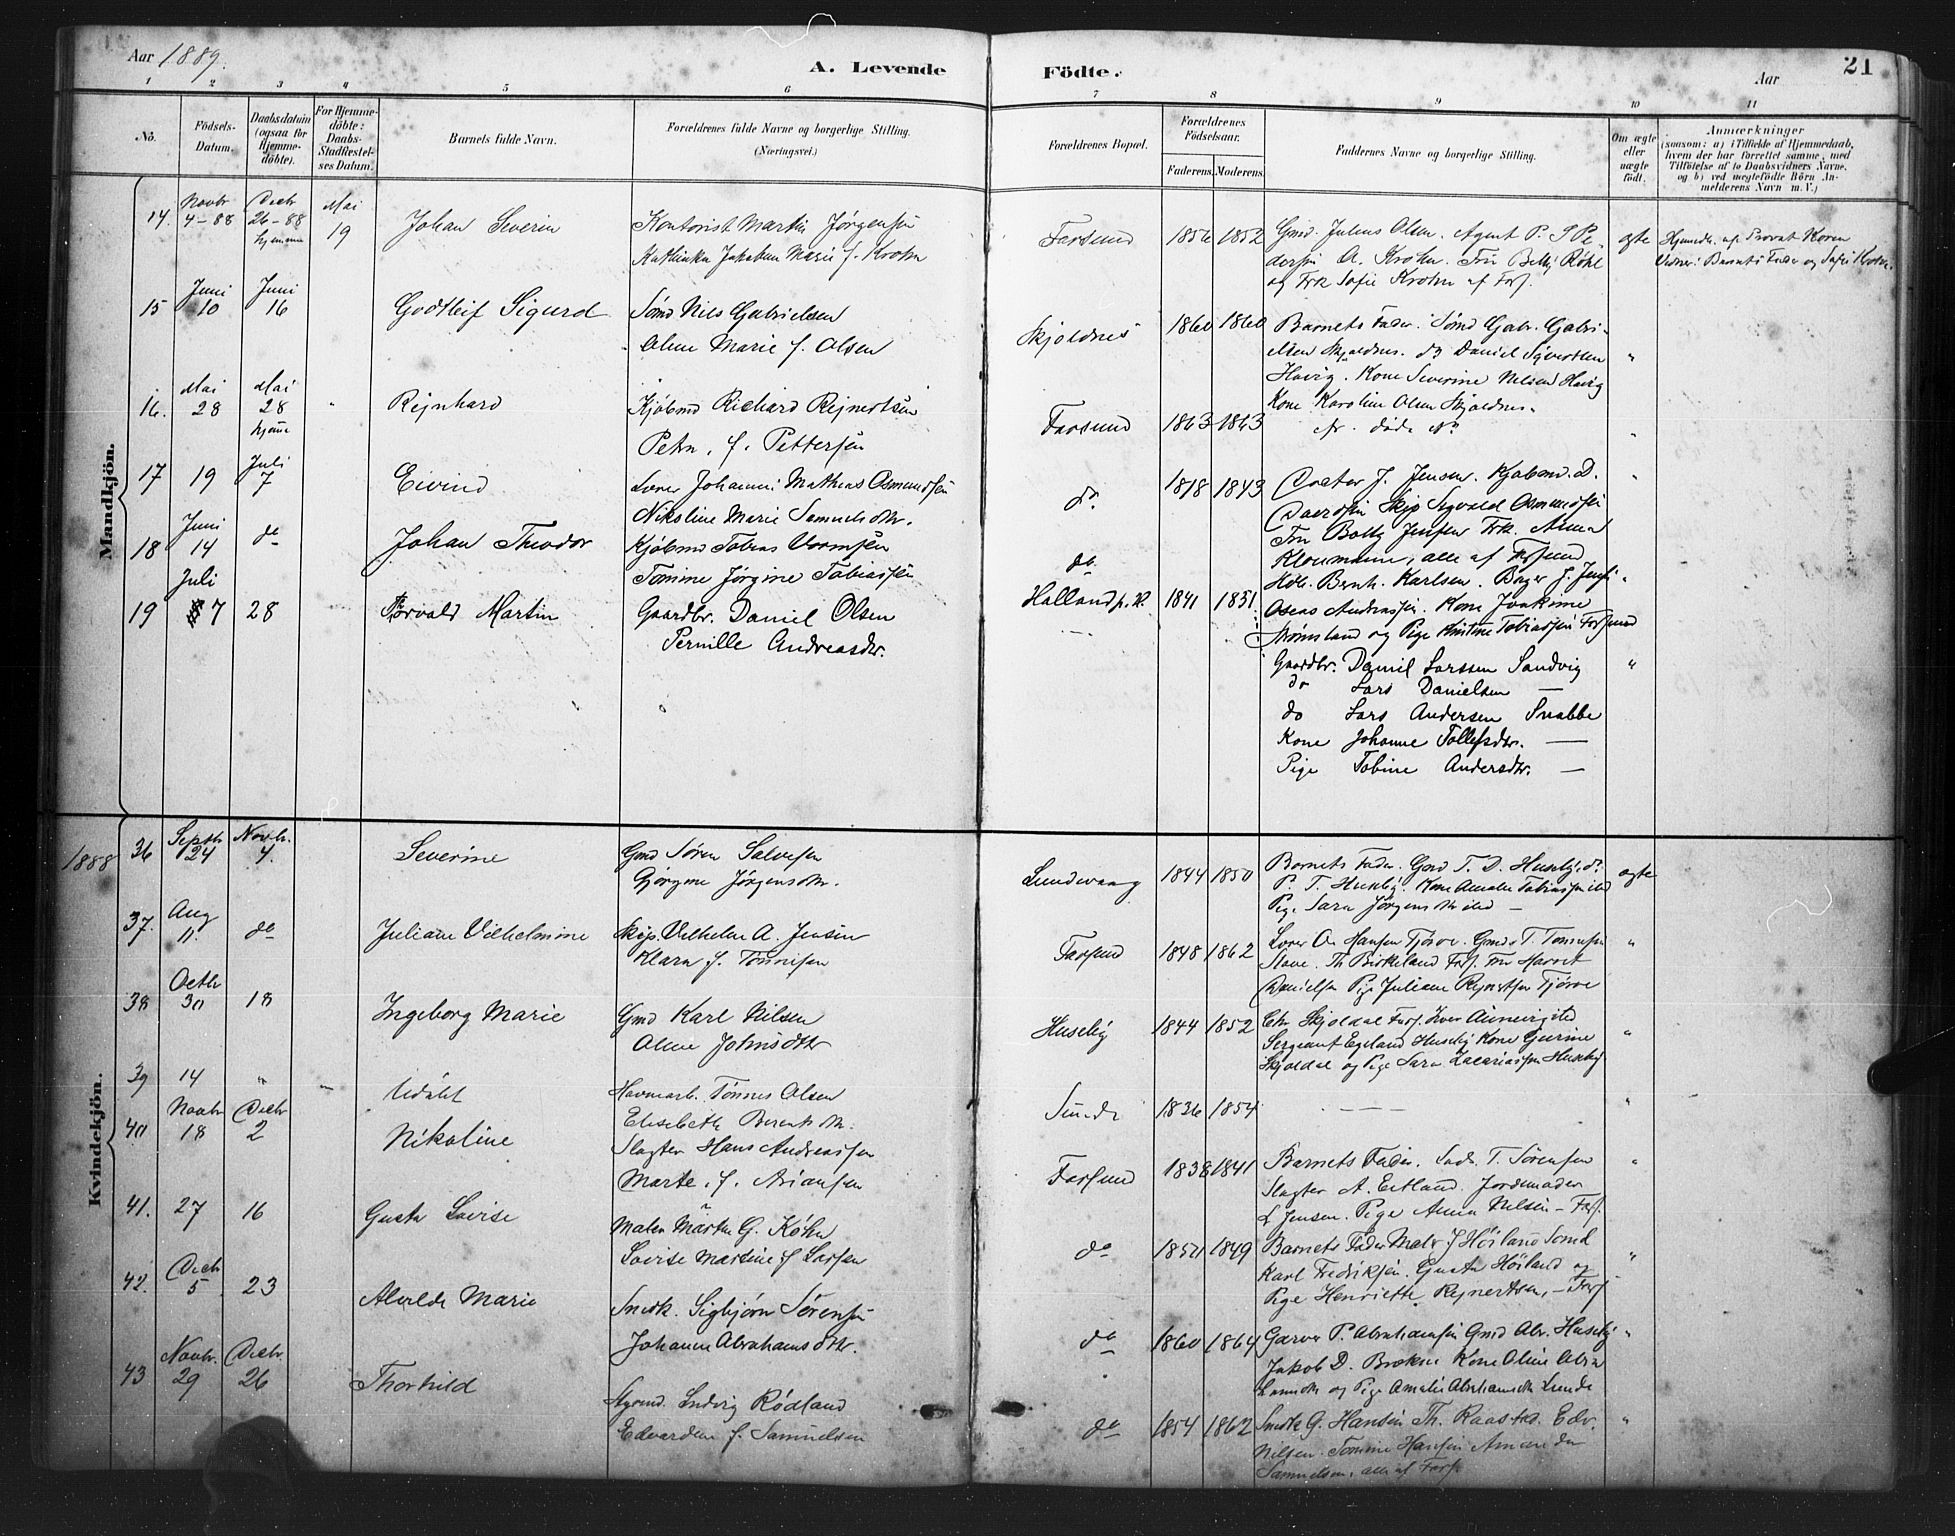 Aar 1889.
A. Levende
Födte.
Aar
21
1 2 3 4 5 6 7 8 9 10 11
No.
Födsels-Datum.
Daabsdatum (ogsaa for Hjemme-döbte).
For Hjemme-döbte: Daabs-Stadfæstel-ses Datum.
Barnets fulde Navn.
Forældrenes fulde Navne og borgerlige Stilling.
(Næringsvei.)
Forældrenes Bopæl.
Forældrenes Födselsaar.
Faderens. Moderens.
Faddernes Navne og borgerlige Stilling.
Om ægte eller uægte födt.
Anmærkninger
(saasom: a) i Tilfælde af Hjemmedaab,
hvem der har forrettet samme, med
Tilföielse af to Daabsvidners Navne.
og b) ved uægtefödte Börn An-
melderens Navn m. V.)
Mandkjön.
14. Novbr 4-88 Decbr 26-88 hjemme Mai 19 Johan Severin Kontorist Martin Jørgensen
Kathinka Jakobea Marie f. Krohn
Farsund 1856 1852 Gmd. Julius Olsen. Agent P. S Pe-
dersen A. Krohn. Fru Betty Röhl
og Frk Sofie Krohn af Fars.
ægte
Hjemdb. af Provst Koren
Vidner: Barnets Fader og Sofie Krohn.
15 Juni 10 Juni 16 Godtleif Sigurd Sømd Nils Gabrielsen
Oline Marie f. Olsen
Skjoldnes 1860 1860 Barnets Fader. Sømd Gabr. Gabri-
elsen Skjoldnes. do Daniel Syvertsen
Havig. Kone Severine Nelsen Havig
Kone Karoline Olsen Skjoldnes.
"
16. Mai 28 Mai 28 hjeme " Rejnhard Kjøbmd Richard Rejnertsen
Petra, f. Pettersen
Farsund 1863 1863 cfr. døde No
"
17 19 Juli 7 Eivind Lærer Johannes Mathias Osmundsen
Nikoline Marie Samuelsdtr.
do. 1818 1843 Doctor J. Jensen. Kjøbmd. D.
Davidsen Skip Sigvald Osmundsen
Fru Bolly Jensen Frk. Anna
Kloumann, alle af Farsund
"
18 Juni 14 do Johan Theodor Kjøbmd Tobias Vormsen
Tomine Jørgine Tobiassen
do. Hdb. Bernh. Karlsen. Bager J. Jens.
Oseas Andreassen. Kone Joakime
Strømsland og Pige Kristine Tobiassen Farsund
19 Juli 7 28 Torvald Martin Gaardbr. Daniel Olsen
Pernille Andreasdtr.
Halland p. V. 1841 1851.
Gaardbr. Daniel Larssen Sandvig "
do Lars Danielsen —
do Lars Andersen Snabbe
Kone Johanne Tollefsdtr. —
Pige Tobine Andersdtr. —
Kvindekjön.
1888
36 Septbr 24 Novbr. 4. Severine Gmd Søren Salvesen
Gjørgine Jørgensdtr.
Lundevaag 1844 1850 Barnets Fader. Gmd T. D. Huseby, do
P. T. Huseby. Kone Amalie Tobiassen ibd
Pige Sara Jørgensdtr ibd —
ægte
37. Aug 11. do Juliane Vilhelmine Skip. Vilhelm A. Jensen
Klara f. Tønnesen
Farsund 1848 1862 Lærer On Hansen Tjørve. Gmd T. Tønnesen
Stave. Th Birkeland Fars. Fru Harriet
Danielsen Pige Juliane Rejnertsen Tjørve
"
38 Octbr 30 18 Ingeborg Marie Gmd Karl Nilsen
Oline Johnsdtr
Huseby 1844 1852 Chr Skjoldal Fars. Iver ibd
Sergeant Egeland Huseby Kone Gurine
Skjoldal og Pige Sara Zacariassen Huseby
"
39 14 " Udøbt Havnearb. Tønnes Olsen
Elisabeth Berentsdtr.
Sunde 1836 1854 — — —
"
40 Novbr 18 Decbr 2 Nikoline Slagter Hans Andreassen
Marte, f. Ariansen
Farsund 1838 1841 Barnets Fader. Sadr. T. Sørensen
Slagter A. Eitland Jordemoder
L Jensen. Pige Anna Nelsen — Fars.
"
41. 27 16 Gusta Lovise Maler Martin G. Køhn
Lovise Martine f Larsen
do 1851 1849 Barnets Fader Maler J Höiland Sømd
Karl Fredriksen. Gusta Höiland og
Pige Henriette Rejnertsen, — Fars
"
42. Decbr 5 23 Alvilde Marie Snedk. Sigbjørn Sørensen
Johanne Abrahamsdtr.
do 1860 1864 Garver P. Abrahamsen Gmd Abr. Huseby
Jakob D. Brekne Kone Oline Abra
hamsdtr og Pige Amalie Abrahamsdtr Lunde
"
43 Novbr. 29 Decbr. 26 Thorhild Styrmd. Ludvig Rödland
Edvardine f. Samuelsen
do 1854 1862 Snedk G. Hansen Th. Raastad. Edv.
Nilsen. Tomine Hansen Amanda
Samuelsen, alle af Fars.
"